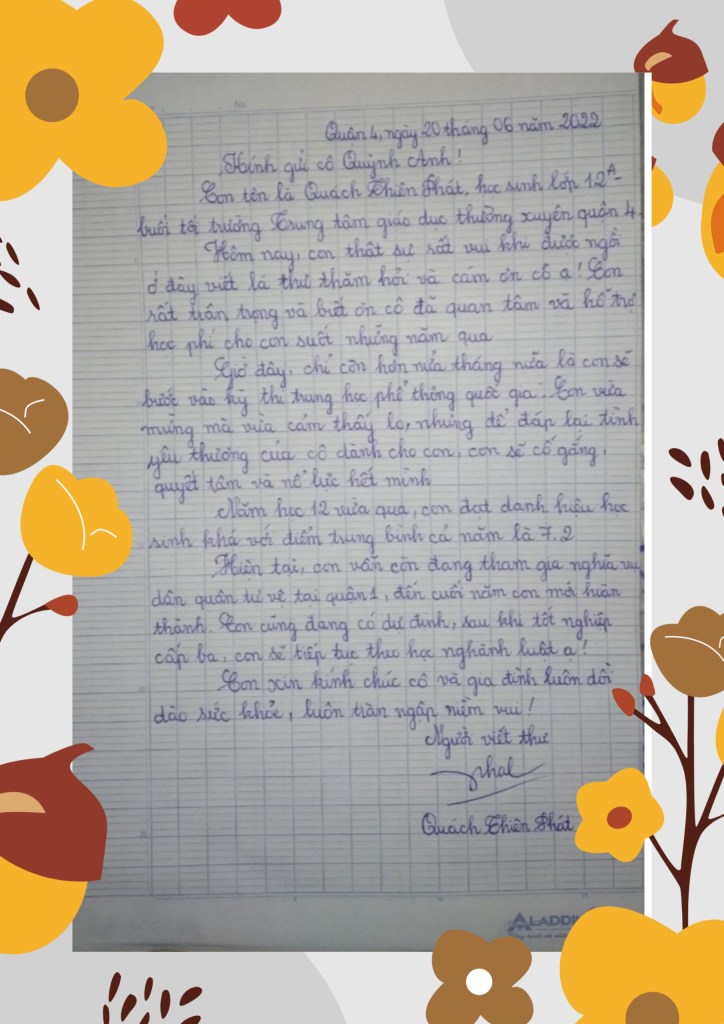 No
Quận 4, ngày 20 tháng 06 năm 2022
Kính gửi cô Quỳnh Anh!
Con tên là Quách Thiên Phát, học sinh lớp 12A-
buổi tối trường Trung tâm giáo dục thường xuyên quận 4.
Hôm nay, con thật sự rất vui khi được ngồi
ở đây viết lá thư thăm hỏi và cám ơn cô ạ! Con
rất trân trọng và biết ơn cô đã quan tâm và hổ trợ
học phí cho con suốt những năm qua
Giờ đây, chỉ còn hơn nửa tháng nữa là con sẽ
bước vào kỳ thi trung học phổ thông quốc gia. Con vừa
mừng mà vừa cảm thấy lo, nhưng để đáp lại tình
yêu thương của cô dành cho con, con sẽ cố gắng,
quyết tâm và nổ lực hết mình
Năm học 12 vừa qua, con đạt danh hiệu học
sinh khá với điểm trung bình cả năm là 7.2
Hiện tại, con vẫn còn đang tham gia nghĩa vụ
dân quân tự vệ tại quận 1, đến cuối năm con mới hoàn
thành. Con cũng đang có dự định, sau khi tốt nghiệp
cấp ba, con sẽ tiếp tục theo học nghành luật ạ!
Con xin kính chúc cô và gia đình luôn dồi
dào sức khỏe, luôn tràn ngập niềm vui!
Người viết thư
Phat
Quách Thiên Phát